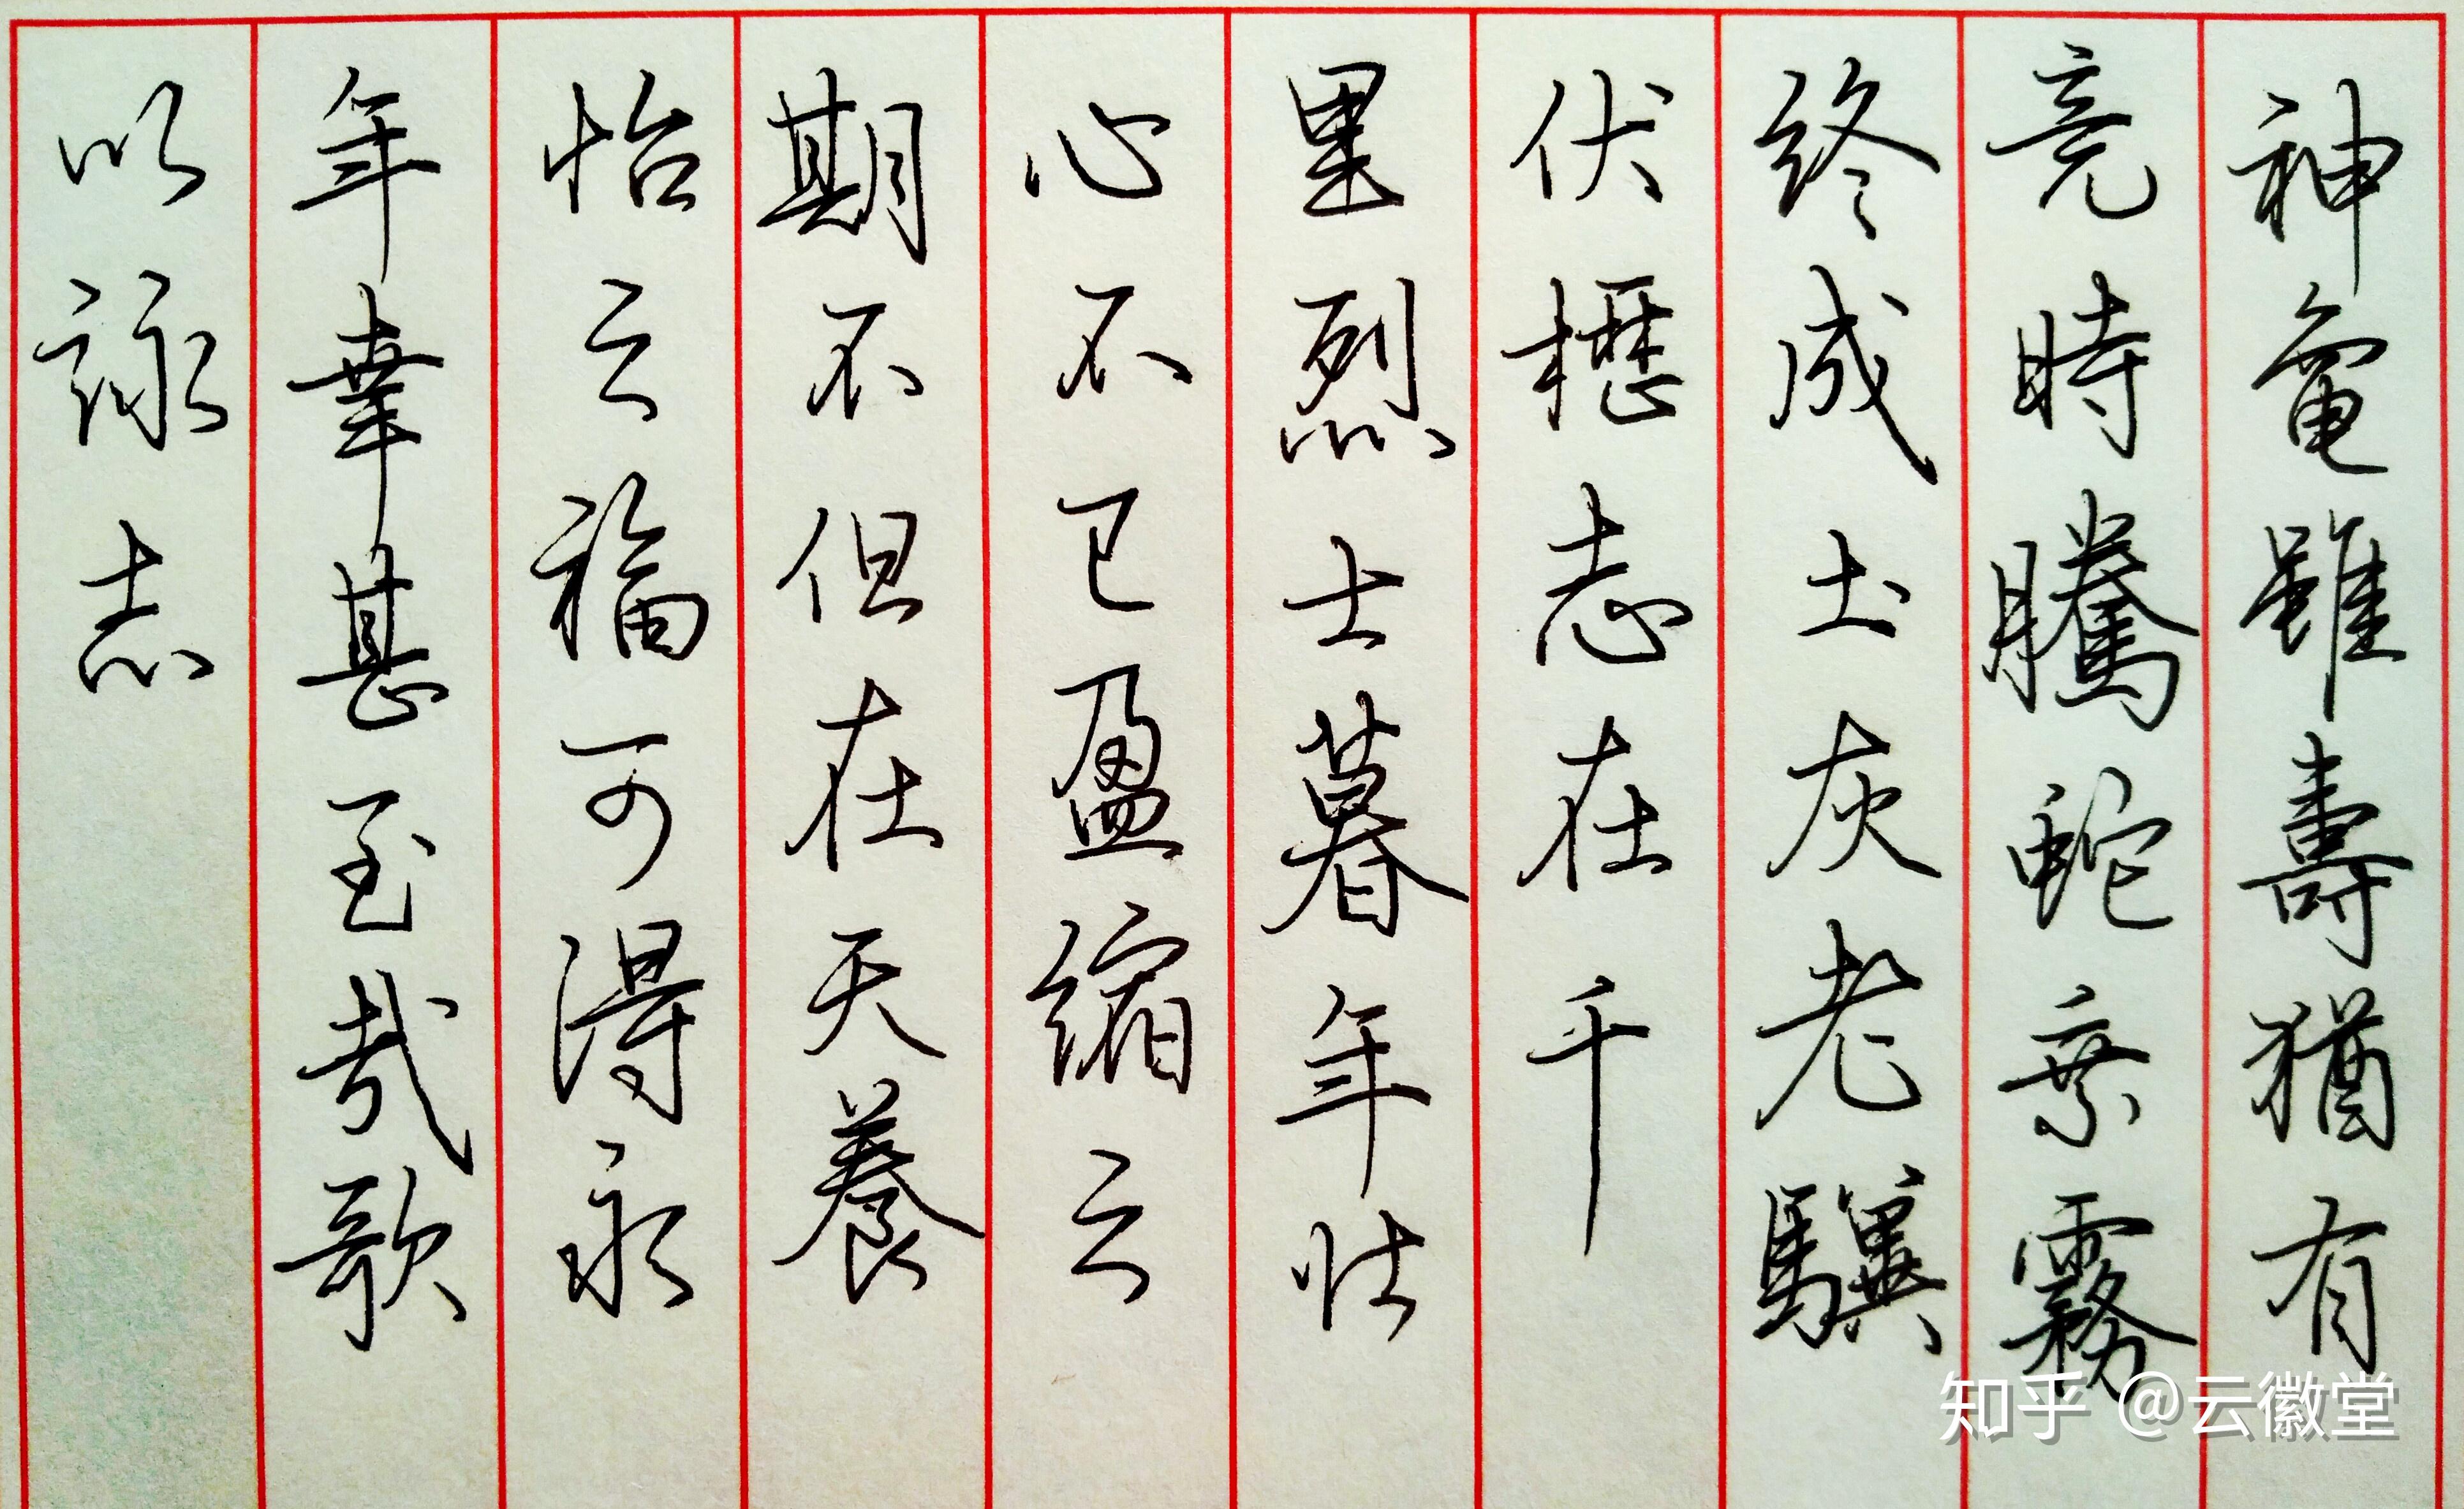 神龜雖壽猶有
竟時騰蛇乘霧
終成土灰老驥
伏櫪志在千
里烈士暮年壯
心不已盈縮之
期不但在天養
怡之福可得永
年幸甚至哉歌
以詠志
知乎 @云徽堂